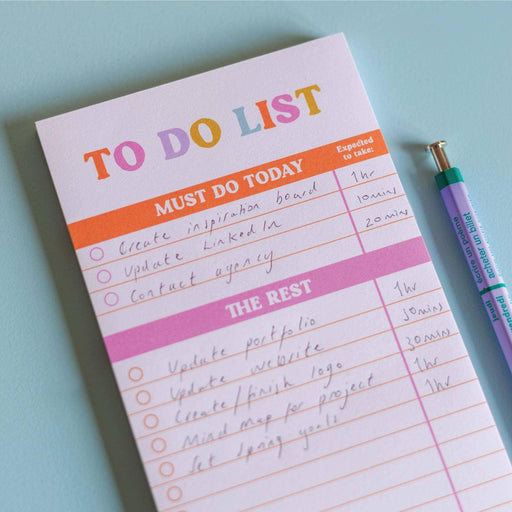 TO DO LIST
MUST DO TODAY Expected to take:
Create inspiration board 1hr
Update LinkedIn 10mins
Contact agency 20mins
THE REST
Update portfolio 1hr
Update website 30mins
Create/finish logo 20mins
Mind map for project 1hr
Set spring goals 1hr
acheter un billet
écrire un poème